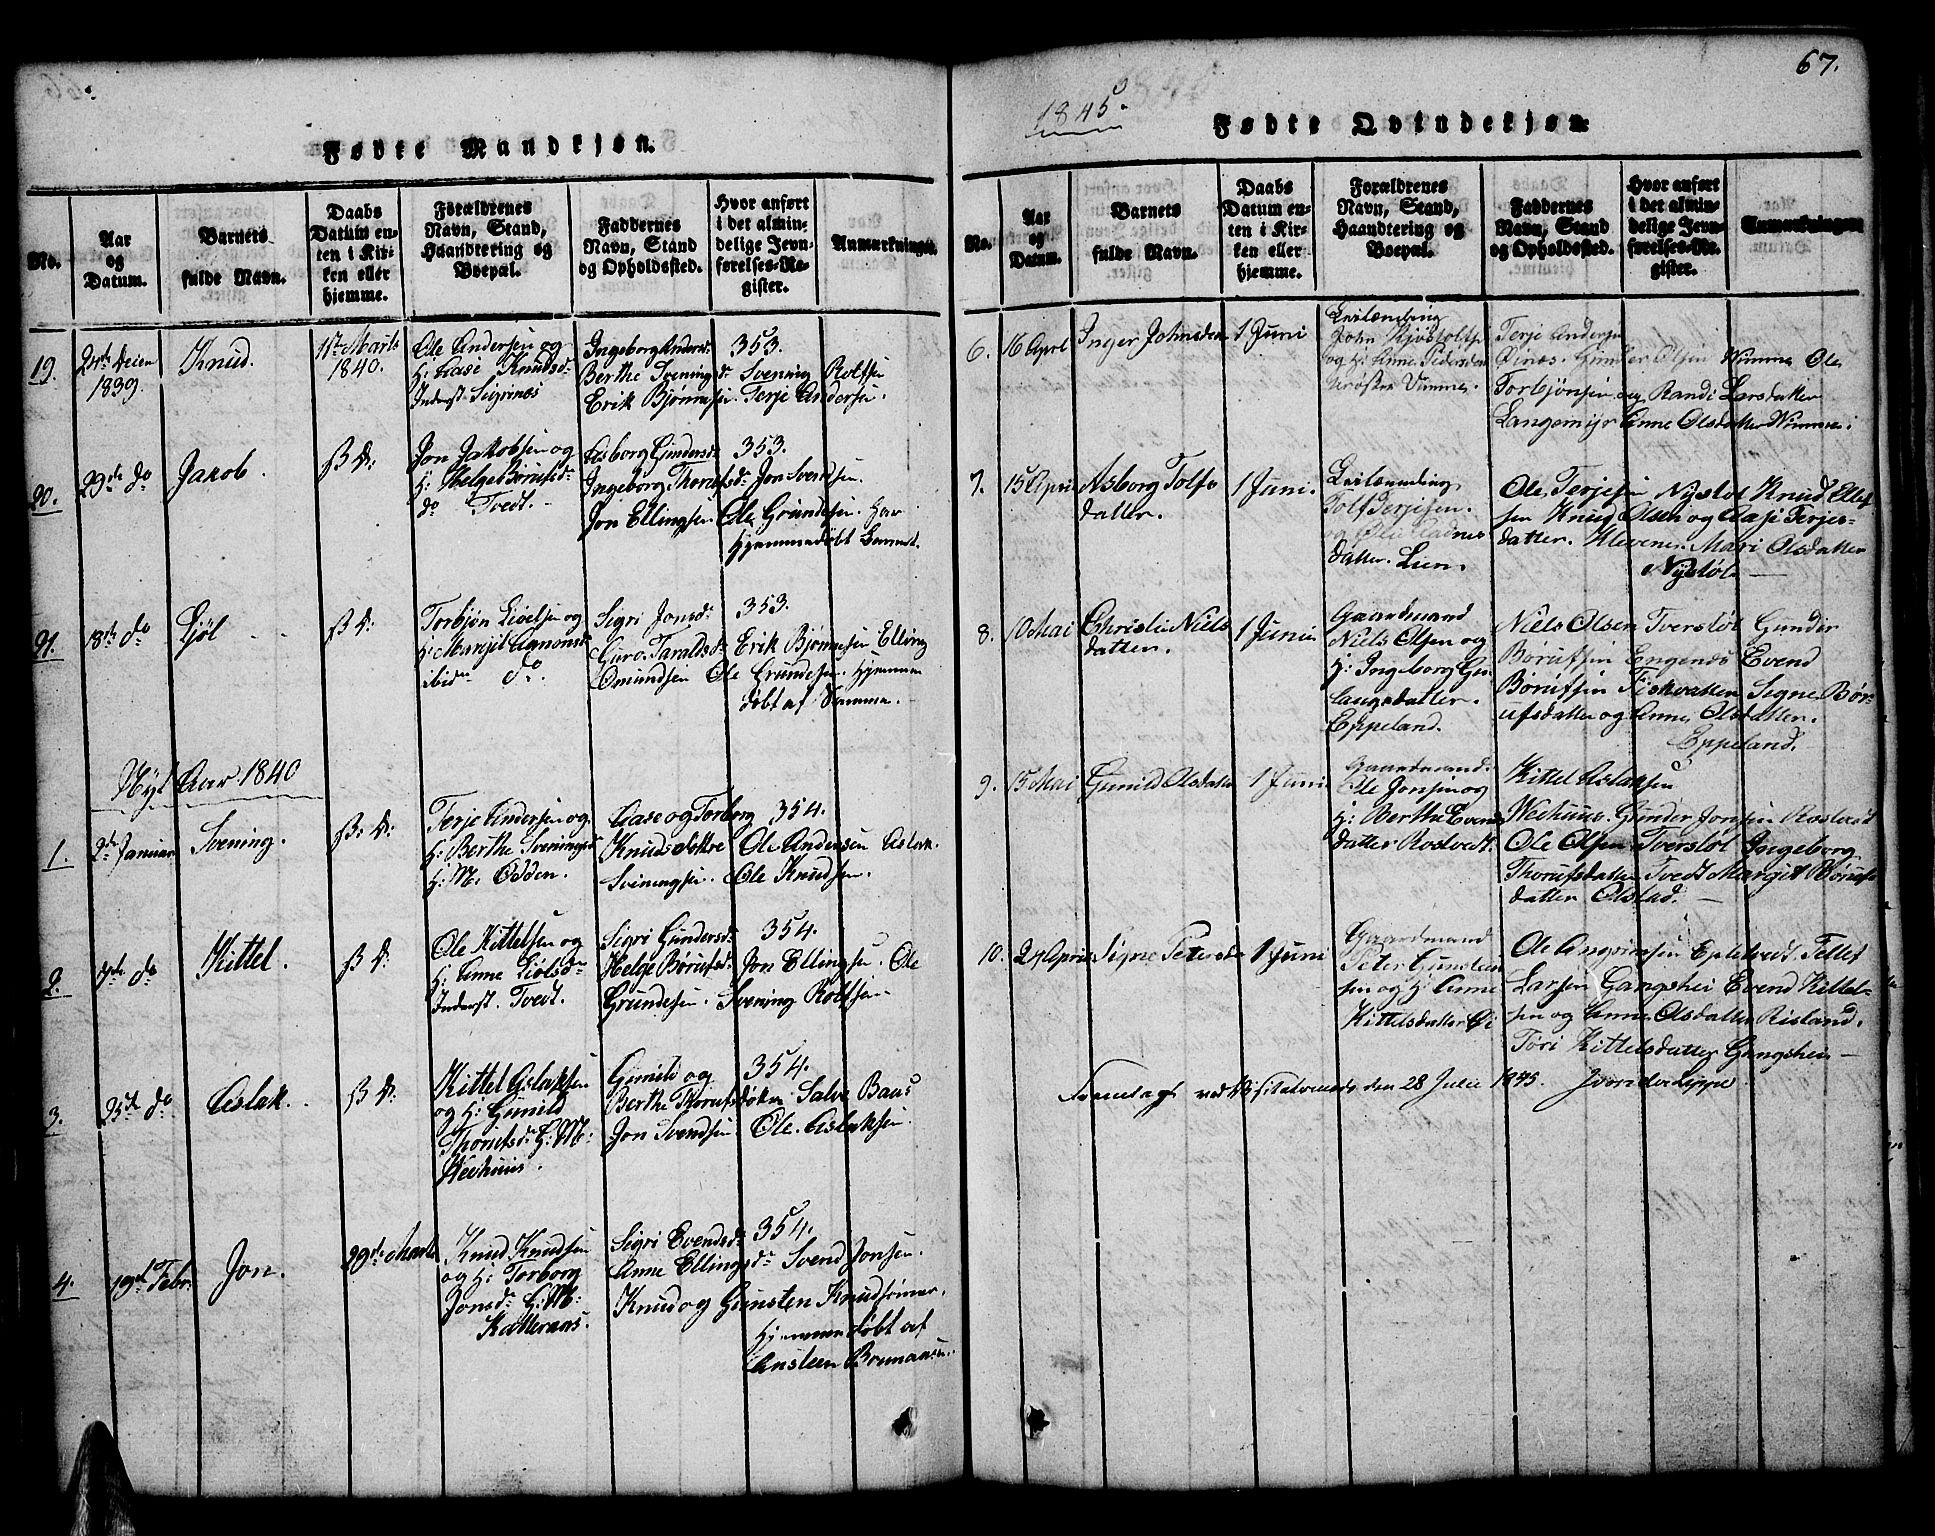 Fødte Mandkjøn.
No.
Aar
og
Datum.
Barnets
fulde Navn.
Daabs
Datum en-
ten i Kir-
ken eller
hjemme.
Forældrenes
Navn, Stand,
Haandtering og
Boepæl.
Faddernes
Navn, Stand
og Opholdssted.
Hvor anført
i det almin-
delige Jevn-
førelses-Re-
gister.
Anmærkninger.
19.
24de Decem
1839.
Knud.
11te Marts
1840.
Ole Andersen og
H: Aase Knudsdr
Inderst. Sigrinæs
Ingeborg Andersdr 353.
Berthe Sveningsdr Svening Rolfsen
Erik Bjørnusen. Terje Andersen.
20.
29de do
Jakob.
S: D:
Jon Jakobsen og
H: Helge Børufsdr
do Tvedt.
Asborg Gundersdr 353.
Ingeborg Thorufsdr Jon Svendsen.
Jon Ellingsen. Ole Grundesen. Har
Hjemmedøbt Barnet.
21.
18de do
Ljøl
S: D:
Torbjøn Liøelsen og
H: Margit Aanonsd
ibidm do.
Sigri Jonsdr 353.
Guro Taraldsdr Erik Bjørnusen Elling
Omundsen Ole Grundesen. Hjemme
døbt af Samme.
Nyt Aar 1840
1.
2de Januar
Svening.
S: D:
Terje Andersen og
H: Berthe Sveningsd
H: M. Odden.
Aase og Torborg 354.
Knudsdøttre Ole Andersen Aslak
Sveningsen. Ole Knudsen.
2.
7de do
Kittel.
S: D:
Ole Kittelsen og
H: Anne Liølsdr
Inderst. Tvedt.
Sigri Gundersdr 354.
Helge Børufsdr Jon Ellingsen. Ole
Grundesen. Svening Rolfsen.
3.
25de do
Aslak.
S: D:
Kittel Aslaksen
og H: Gunild
Thorufsdr G: M:
Wehuus.
Gunild og 354.
Berthe Thorufsdøtre Salve Baas
Jon Svendsen Ole Aslaksen.
4.
19de Febr:
Jon.
29de Marts
Knud Knudsen
og H: Torborg
Jonsdr G: M:
Katteraas.
Sigri Evendsdr 354.
Anne Ellingsdr Svend Jonsen.
Knud og Gunsten Knudsønner.
Hjemmedøbt af
Ansteen Brunaasen.
67.
1845.
Fødte Qvindekjøn.
No.
Aar
og
Datum.
Barnets
fulde Navn.
Daabs
Datum en-
ten i Kir-
ken eller
hjemme.
Forældrenes
Navn, Stand,
Haandtering og
Boepæl.
Faddernes
Navn, Stand
og Opholdssted.
Hvor anført
i det almin-
delige Jevn-
førelses-Re-
gister.
Anmærkninger.
6.
16 Aprl
Inger Johnsdtr
1 Juni
Leilænding
John Kjøstolfs
og H: Anne Pedersdtr
Vimme.
Terje Andersen
Øinæs. Gunder Olsen Vimme Ole
Torbjønsen og Randi Larsdatter
Langemyr Anne Olsdatter Vimme.
7.
15 April
Asborg Tolfs
datter.
1 Juni.
Leilænding
Tolf Terjesen.
datter. Lien.
Ole Terjesen Nystøl Knud Ellef
sen Knud Olsen og Aase Terjes-
datter. Klevene. Mari Olsdatter
Nystøl
8.
10 Mai
Christi Niels
datter.
1 Juni
Gaardmand
Niels Olsen og
H: Ingeborg Gun
laugsdatter.
Eppeland.
Niels Olsen Tverstøl Gunder
Børufsen Engenes Evend
Børufsen Fiskvatten Signe Bør-
ufsdatter og Anne Olsdatter.
Eppeland.
9.
15 Mai
Gunild Olsdatter
1 Juni
Gaardmand.
Ole Jonsen og
H: Berthe Evends
datter Rosvedt.
Kittel Aslaksen
Wehuus. Gunder Jonsen Rosvedt
Ole Olsen Tverstøl Ingeborg
Thorufsdatter Tvedt Margit Børufs
datter Olstad.
10.
24 April
Signe Petersd
1 Juni
Gaardmand
Peter Gunsteen
sen og H: Anne
Kittelsdatter Øi
Ole Angrimsen Eplstvedt. Tellef
Larsen Gangshei Evend Kittel-
sen og Anne Olsdatter Risland.
Tori Kittelsdatter Gangshei
Fremlagt ved Visitatsen den 28 Julii 1845.